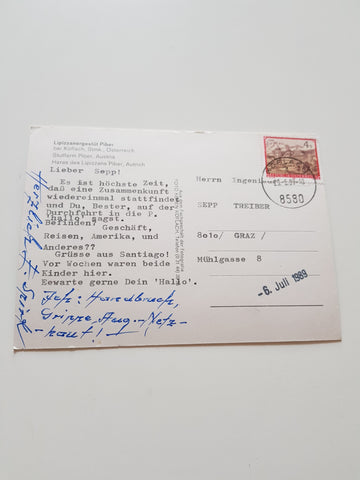 Lipizzanergestüt Piber
bei Köflach, Stmk., Österreich
Studfarm Piber, Austria
Haras des Lipizzans Piber, Autrich
Lieber Sepp!
Es ist höchste Zeit,
daß eine Zusammenkunft
wiedereinmal stattfindet
und Du, Bester, auf der
Durchfahrt in die P.
'hallo' sagst.
Befinden? Geschäft,
Reisen, Amerika, und
Anderes??
Grüsse aus Santiago!
Vor Wochen waren beide
Kinder hier.
Eewarte gerne Dein 'Hallo'.
Herzlich
Grippe, Aug.-Netz-
haut!
4 S
8580
Herrn Ingenieur
SEPP TREIBER
8o1o/ GRAZ /
Mühlgasse 8
-6. Juli 1989